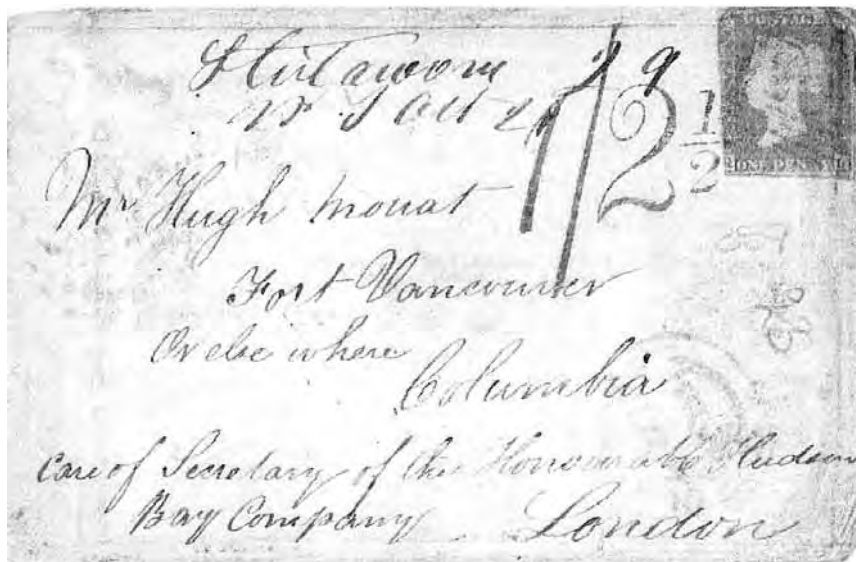 POSTAGE
ONE PENNY
1/2 1/2
Mr Hugh Mouat
Fort Vancouver
Or else where
Columbia
Care of Secretary of the Honourable Hudson
Bay Company London